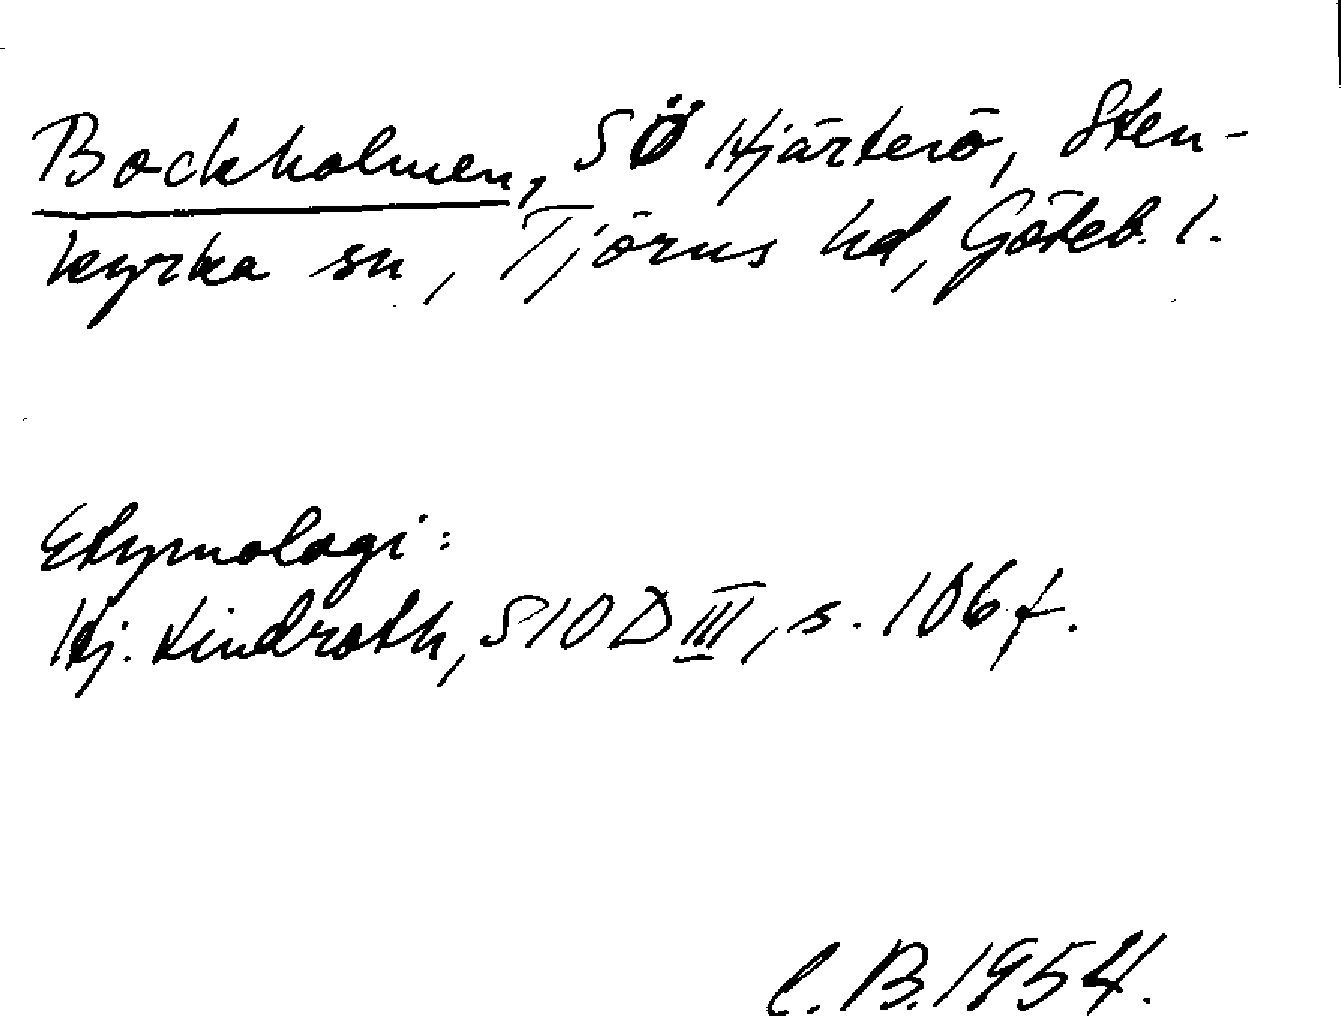 Bockholmen, SÖ Hjärterö, Sten-
kyrka sn, Tjörns hd, Göteb. l.
Etymologi:
Hj. Lindroth, SIOD III, s. 106 f.
C. B. 1954.